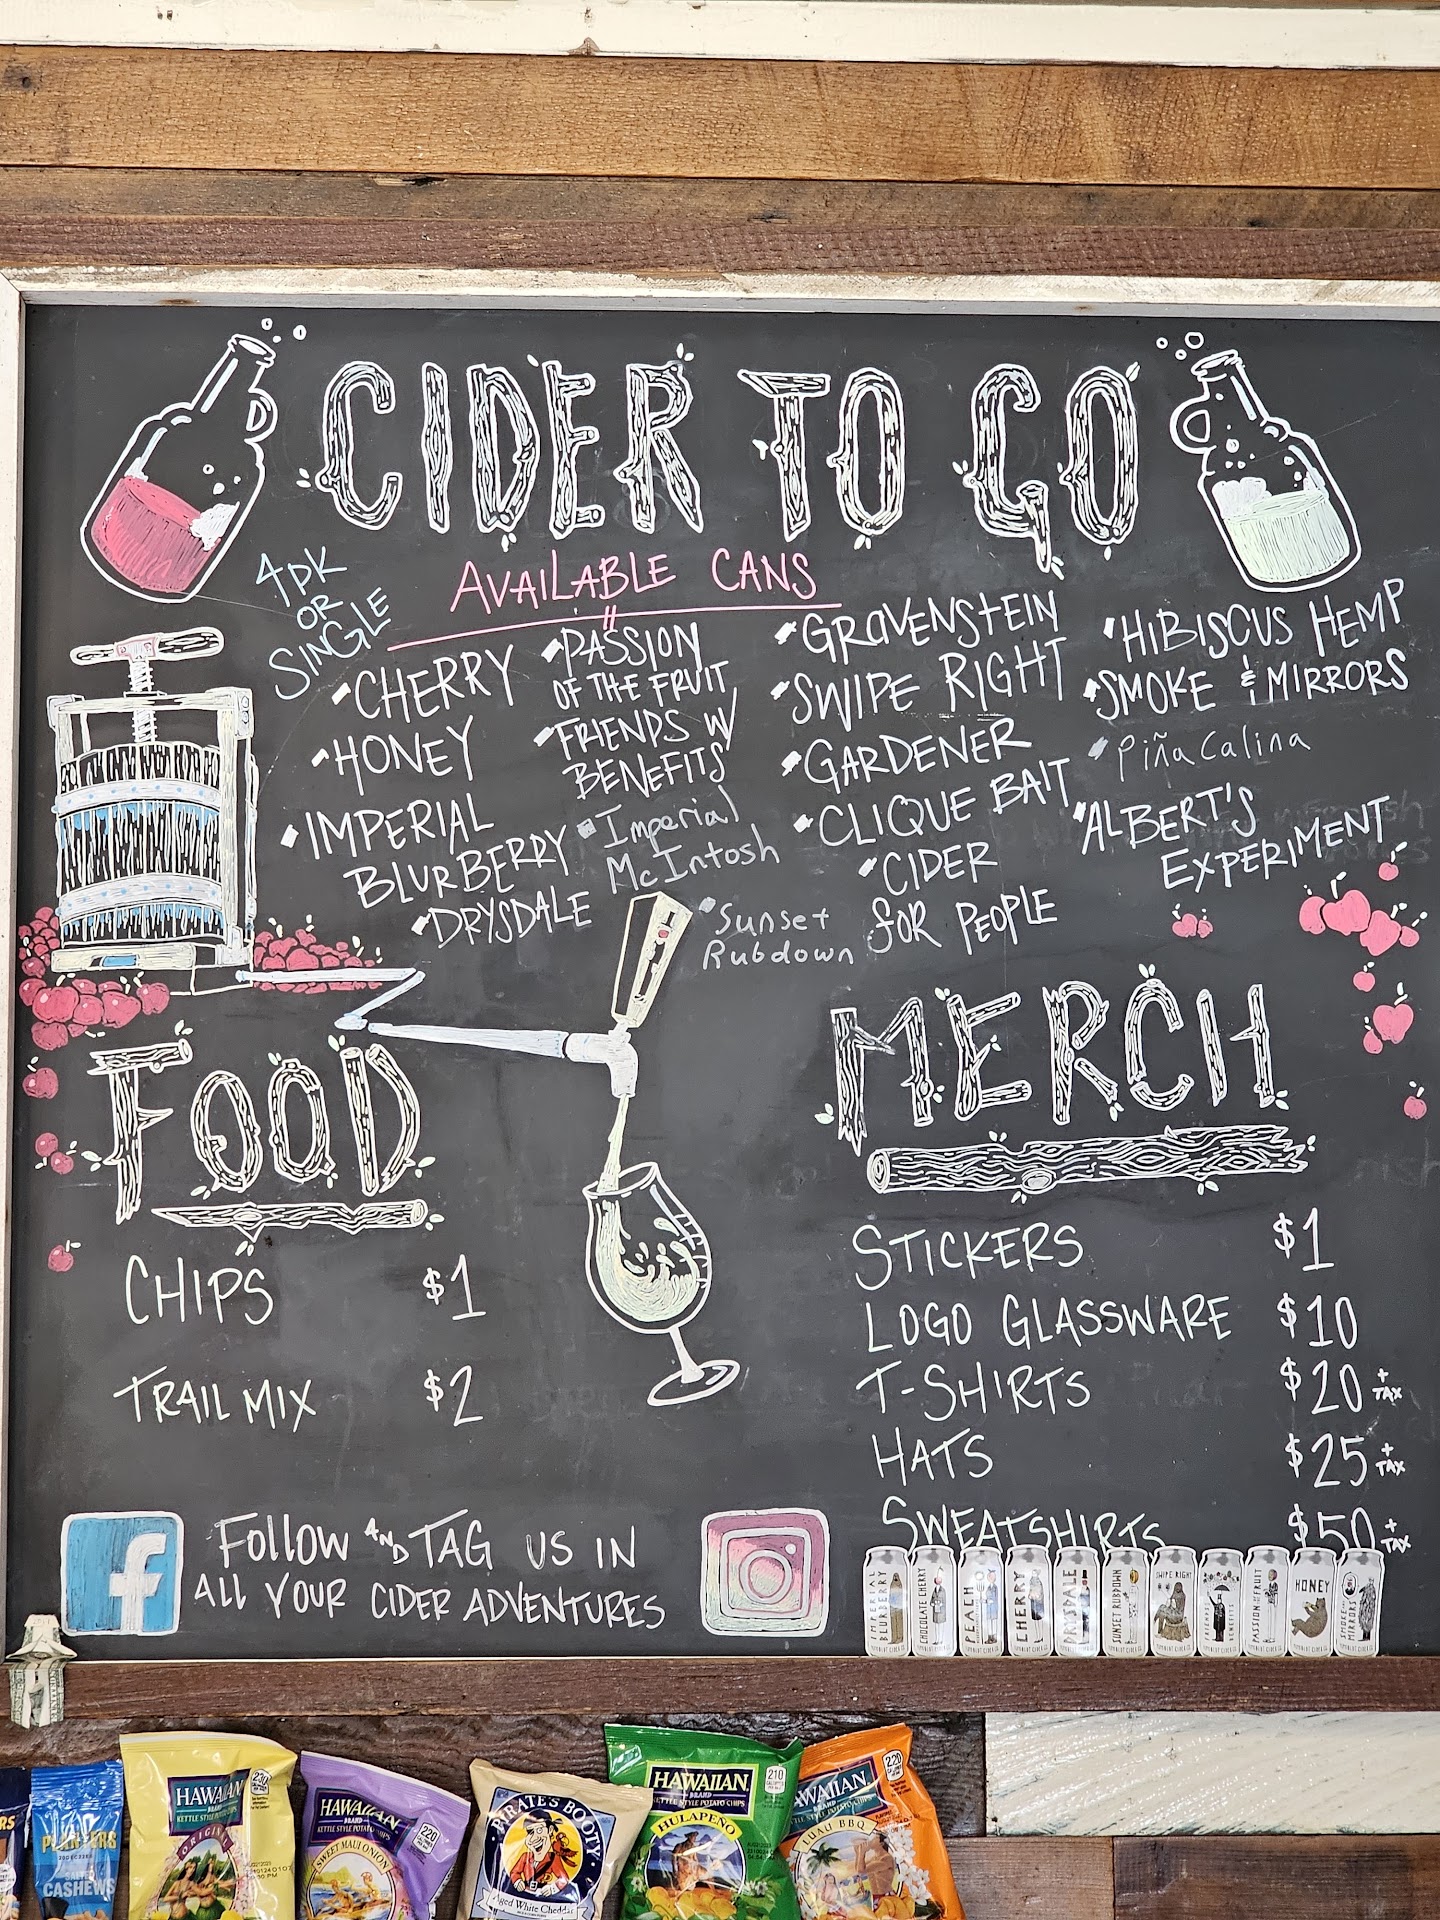 CIDER TO GO
4PK
OR
SINGLE
AVAILABLE CANS
CHERRY
HONEY
IMPERIAL
BLURBERRY
DRYSDALE
PASSION
OF THE FRUIT
FRIENDS W/
BENEFITS
Imperial
McIntosh
Sunset
Rubdown
GRAVENSTEIN
SWIPE RIGHT
GARDENER
CLIQUE BAIT
CIDER
FOR PEOPLE
HIBISCUS HEMP
SMOKE & MIRRORS
Piña Calina
ALBERT'S
EXPERIMENT
FOOD
CHIPS $1
TRAIL MIX $2
MERCH
STICKERS $1
LOGO GLASSWARE $10
T-SHIRTS $20 + TAX
HATS $25 + TAX
SWEATSHIRTS $50 + TAX
f
FOLLOW AND TAG US IN
ALL YOUR CIDER ADVENTURES
IMPERIAL
BLURBERRY
CHOCOLATE CHERRY
PEACH
CHERRY
DRYSDALE
SUNSET RUBDOWN
SWIPE RIGHT
FRIENDS
BENEFITS
PASSION OF THE FRUIT
HONEY
SMOKE AND
MIRRORS
PLANTERS
CASHEWS
HAWAIIAN
BRAND
KETTLE STYLE POTATO CHIPS
ORIGINAL
230
HAWAIIAN
BRAND
KETTLE STYLE POTATO CHIPS
SWEET MAUI ONION
220
PIRATE'S BOOTY
Aged White Cheddar
HAWAIIAN
BRAND
KETTLE STYLE POTATO CHIPS
HULAPEÑO
210
LUAU BBQ
220